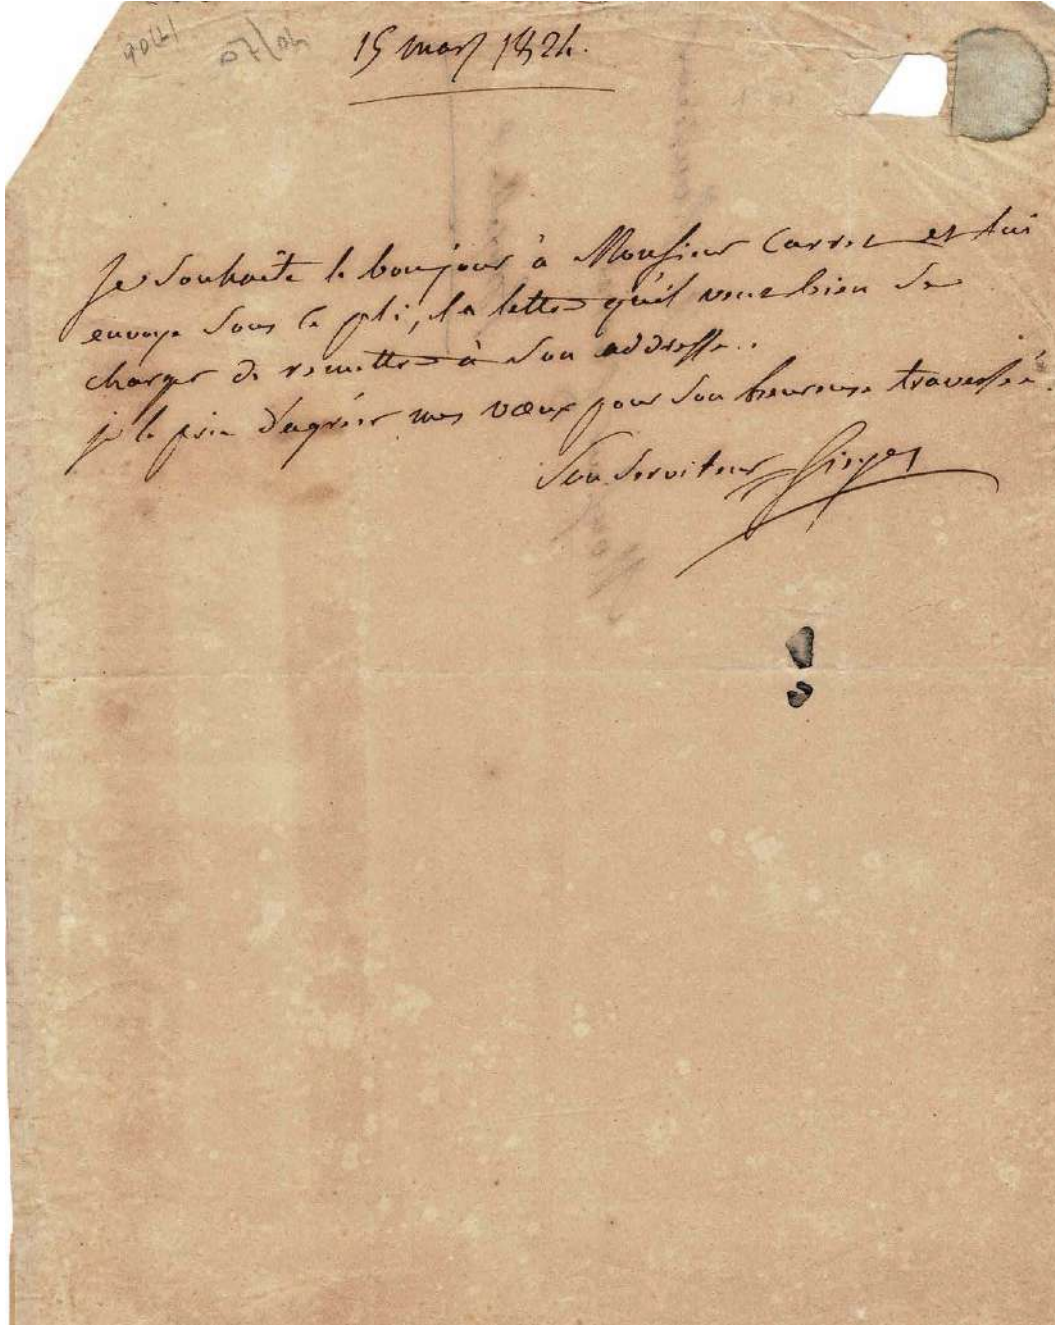 15 mars 1824.
Je souhaite le bonjour à Monsieur Carret et lui
envoye sous ce pli, la lettre qu'il veut bien se
charger de remettre à son addresse..
je le prie d'agréer mes vœux pour son heureuse traversée.
Son serviteur